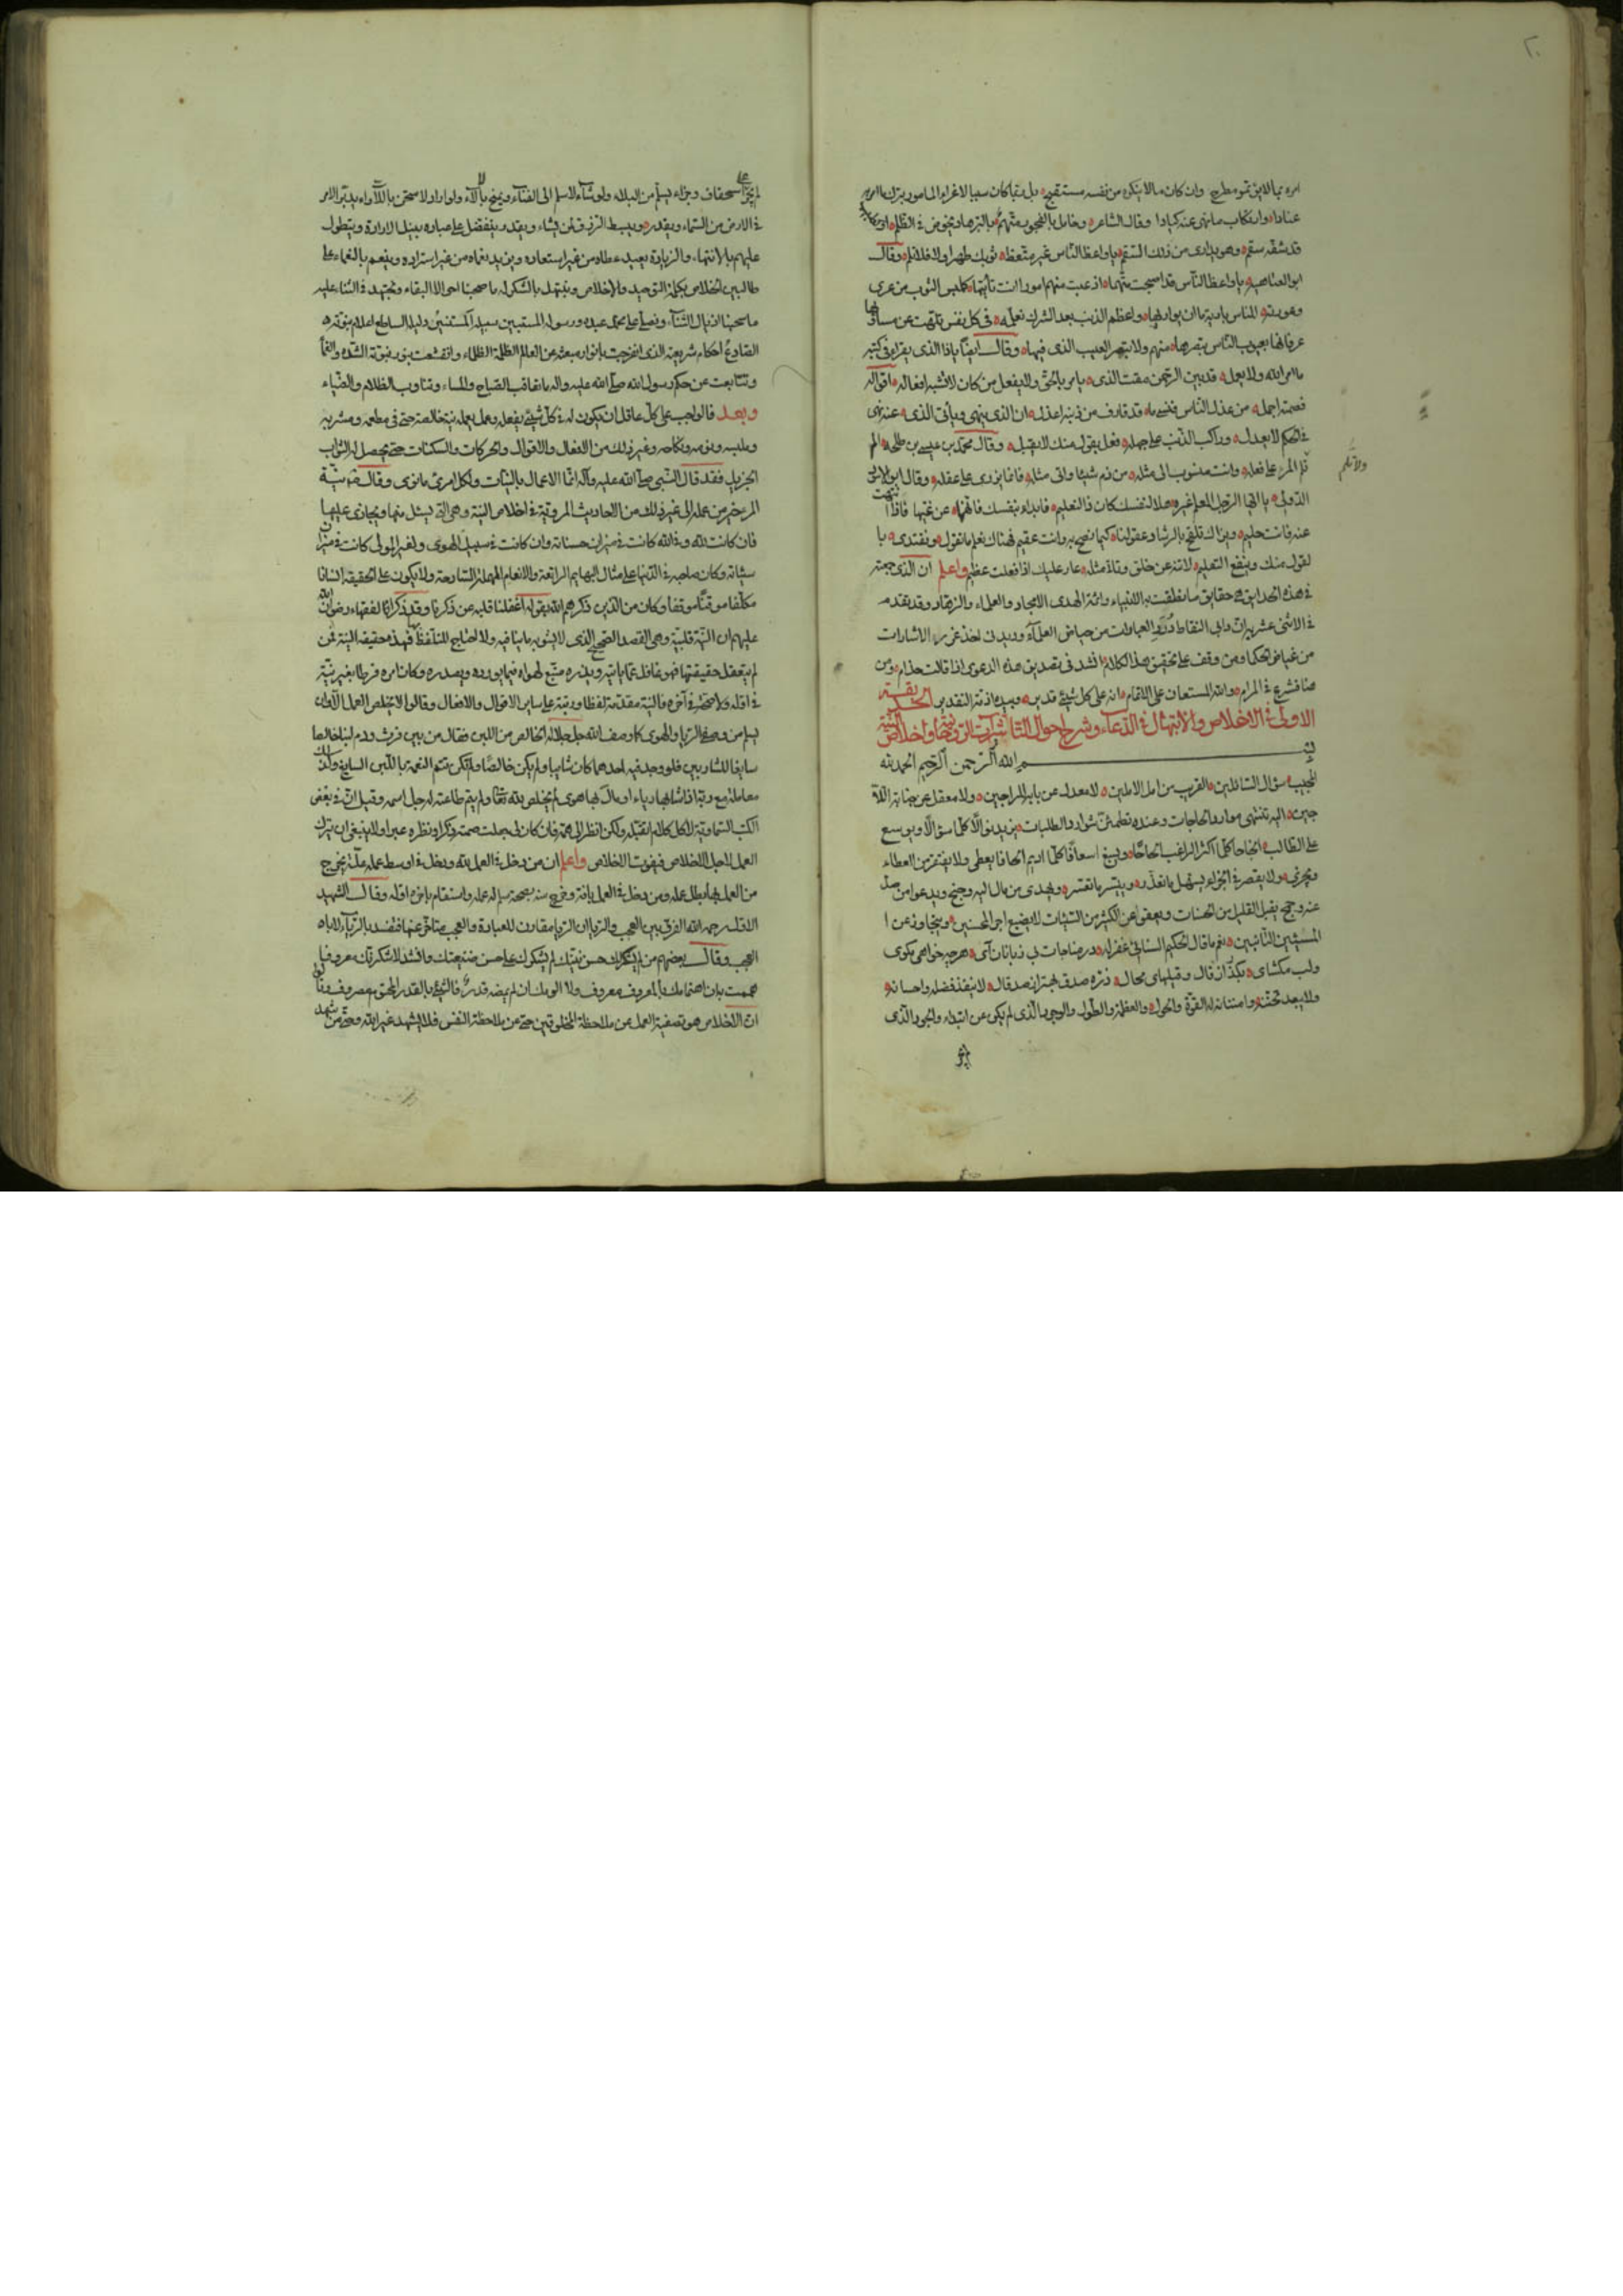 امره بما لايق تمو مطرح وان كان ما لا ينكر من نفسه مستقبح بل ربما كان سببا لاغراء المامور بترك ما امر به
عنادا وارتكاب ما نهى عنه كيادا وقال الشاعر وعامل بالفجور يامر بالبر هاد يخوض في الظلم او كطبيب
قد شفه سقم وهو يداوى من ذلك السقم ياواعظ الناس غير متعظ ثوبك طهر اولا فلا تلم وقال
ابو العتاهيه ياواعظ الناس قد اصبحت متهما اذ عبت منهم امورا انت تأتيها كملبس الثوب من عرى
وعورته للناس باديه ما ان يواريها واعظم الذنب بعد الشرك تعلمه في كل نفس تلهت عن مساويها
عرفانها بعيوب الناس تبصرها منهم ولا تبصر العيب الذى فيها وقال ايضا ياذا الذى يقراء في كتبه
ما امر الله ولا يعمل قد بين الرحمن مقت الذى يامر بالحق ولا يفعل من كان لا تشبه افعاله اقواله
فصمته اجمل من عذل الناس فنفسه بما قد قارف من ذنبه اعذل ان الذى ينهى ويأتى الذى عنه نهى
في الحكم لا يعدل وراكب الذنب على جهله فعل يقول منك لا يقبل وقال محمد بن عيسى بن طلحه الم
تلم المرء على فعله وانت منسوب الى مثله من ذم شيئا واتى مثله فانما يزرى على عقله وقال ابو الاسود
الدولى يا ايها الرجل المعلم غيره هلا لنفسك كان ذا التعليم فابداء بنفسك فانهها عن غيها فاذا انتهت
عنه فانت حليم ويراك تلقح بالرشاد عقولنا كيما نصح به وانت عقيم فهناك تعلم ما تقول ونقتدى با
لقول منك وينفع التعليم لا تنه عن خلق وتاتى مثله عار عليك اذا فعلت عظيم واعلم ان الذى جمعته
في هذه الحدايق هى حقايق ما نطقت به الانبياء وائمة الهدى الامجاد والعلماء والزهاد وقد تقدم
في الاثنى عشريه ان دابى التقاط درر العبارات من حياض العلماء وديدنى اخذ غرر الاشارات
من غياض الحكما ومن وقف على تحقيق هذا الكلام انشد في تصديق هذه الدعوى اذا قالت حذام ومن
هنا نشرع في المرام والله المستعان على الاتمام انه على كل شيئ قدير وبيده ازمة التقدير الحديقة
الاولى في الاخلاص والابتهال في الدعاء وشرح احوال
بسم الله الرحمن الرحيم الحمد لله
المجيب سؤال السائلين القريب من امل الاملين لا معدل عن بابه للراجين ولا معقل عن جنابه للا
جين اليه تنتهى موارد الحاجات وعنده تطمئن شوارد الطلبات يزيد نوالا كلما سؤالا ويوسع
على الطالب انجاحا كلما اكثر الراغب الحاحا ويسبغ اسعافا كلما اديم الحافا يعطى ولا يفتقر من العطاء
ويجزى ولا يقصر في الجزاء يسهل ما تعذر وييسر ما تعسر ويهدى من مال اليه وجنح ويدعوا من صد
عنه وجمح يقبل القليل من الحسنات ويعفو عن الكثير من السيئات لا يضيع اجر المحسنين ويتجاوز عن ا
المسيئين التائبين نعم ما قال الحكيم السنائى غفر له در مناجات بى زبانان آى هرچه خواهى مكوى
ولب مكشاى بگذر از قال وقيلهاى محال ذره صدق بهتر از صد قال لا ينفد فضله واحسانه
ولا يبعد تحننه وامتنانه له القوة والحول والعظمة والطول والوجود الذى لم يكن عن ابتداء والجود الذى
ولا تلم
لم يجز على استحقاق وجزاء يسلم من البلاء ولو شاء لاسلم الى الفناء ويمنح بالآلاء ولو اراد لامتحن باللأواء يدبر الامر
في الارض من السماء ويقدره ويبسط الرزق لمن يشاء ويقدر يتفضل على عباده بنيل الارادة ويتطول
عليهم بالانتهاء والزيادة يعيد عطاه من غير استعاده ويزيد نعماه من غير استزاده وينعم بالنعماء على
طالبين الخلاص بكلمة التوحيد والاخلاص ونبتهل بالشكر له ما صحبنا احوال البقاء ونجتهد في الثناء عليه
ما سحبنا اذيال الثناء ونصلى على محمد عبده ورسوله المستبين سبيله المستنير دليله الساطع اعلام نبوته
الصادع احكام شريعته الذى انفرجت بانوار مبعثه عن العالم الظلمة الظلماء وانقشعت بنور نبوته الشدة والغماء
وتتابعت عن حكم رسول الله صلى الله عليه واله ما تعاقب الصباح والمساء وتناوب الظلام والضياء
وبعد فالواجب على كل عاقل ان يكون له في كل شيئ يفعله وعمل يعمله نية خالصة حتى في مطعمه ومشربه
وملبسه ونومه ونكاحه وغير ذلك من الافعال والاقوال والحركات والسكنات حتى يحصل له الثواب
الجزيل فقد قال النبى صلى الله عليه وآله انما الاعمال بالنيات ولكل امرئ ما نوى وقال نية
المرء خير من عمله الى غير ذلك من الاحاديث المروية في اخلاص النية وهى التى يسئل عنها ويجازى عليها
فان كانت لله وفي الله كانت في ميزان حسناته وان كانت في سبيل الهوى ولغير المولى كانت في ميزان
سيئاته وكان صاحبه في الدنيا على مثال البهايم الراتعة والانعام المهملة السارحة ولا يكون على الحقيقة انسانا
مكلفا موقنا موقفا وكان من الذين ذكرهم الله بقوله اغفلنا قلبه عن ذكرنا وقد ذكر ائمة الفقهاء رضوان الله
عليهم ان النية قلبية وهى القصد الصحيح الذى لا يشوبه ما ينافيه ولا احتياج للتلفظ فهذه حقيقة النية فمن
لم يتعقل حقيقتها فهو غافل عما ياتيه ويذره متبع لهواه فيما يورده ويصدره وكان امره فرطا بغير نية
في اوله ولا تحضر في آخره فالنية مقدمة لفظا ورتبة على ساير الاقوال والافعال وقالوا لا يخلص العمل الا ان
يسلم من وصفى الريا والهوى كما وصف الله جل جلاله الخالص من اللبن فقال من بين فرث ودم لبنا خالصا
سايغا للشاربين فلو وجد فيه احدهما كان شايبا ولم يكن خالصا ولم تكن تتم النعمة باللبن السايغ وكذلك
معاملته مع ربه اذا شابها رياء او مال بها هوى لم تخلص لله تعالى ولم يتم طاعته له جل اسمه وقيل ان في بعض
الكتب السماوية لا كل كلام اتقبله ولكن انظر الى همه فان كان لى جعلت صمته ذكرا ونظره عبرا ولا ينبغى ان يترك
العمل لاجل الاخلاص فيفوت الاخلاص واعلم ان من دخل في العمل لله ودخل في اوسط عمله علة يخرج
من العمل بها بطل عمله ومن دخل في العمل بافة وخرج منه بصحة سلم له عمله واستقام باخره اوله وقال الشهيد
الاول رحمه الله الفرق بين العجب والريا ان الريا مقارن للعبادة والعجب متاخر عنها فتفسد بالريا لا با
لعجب وقال بعضهم من لم يشكرك حسن نيتك لم يشكرك على حسن صنيعتك وانشد لاشكرنك معروفا
هممت به ان اهتمامك بالمعروف معروف ولا الومك ان لم يمضه قدر فالشيئ بالقدر المحتوم مصروف وقالوا
ان الاخلاص هو تصفية العمل عن ملاحظة المخلوقين حتى عن ملاحظة النفس فلا يشهد غير الله